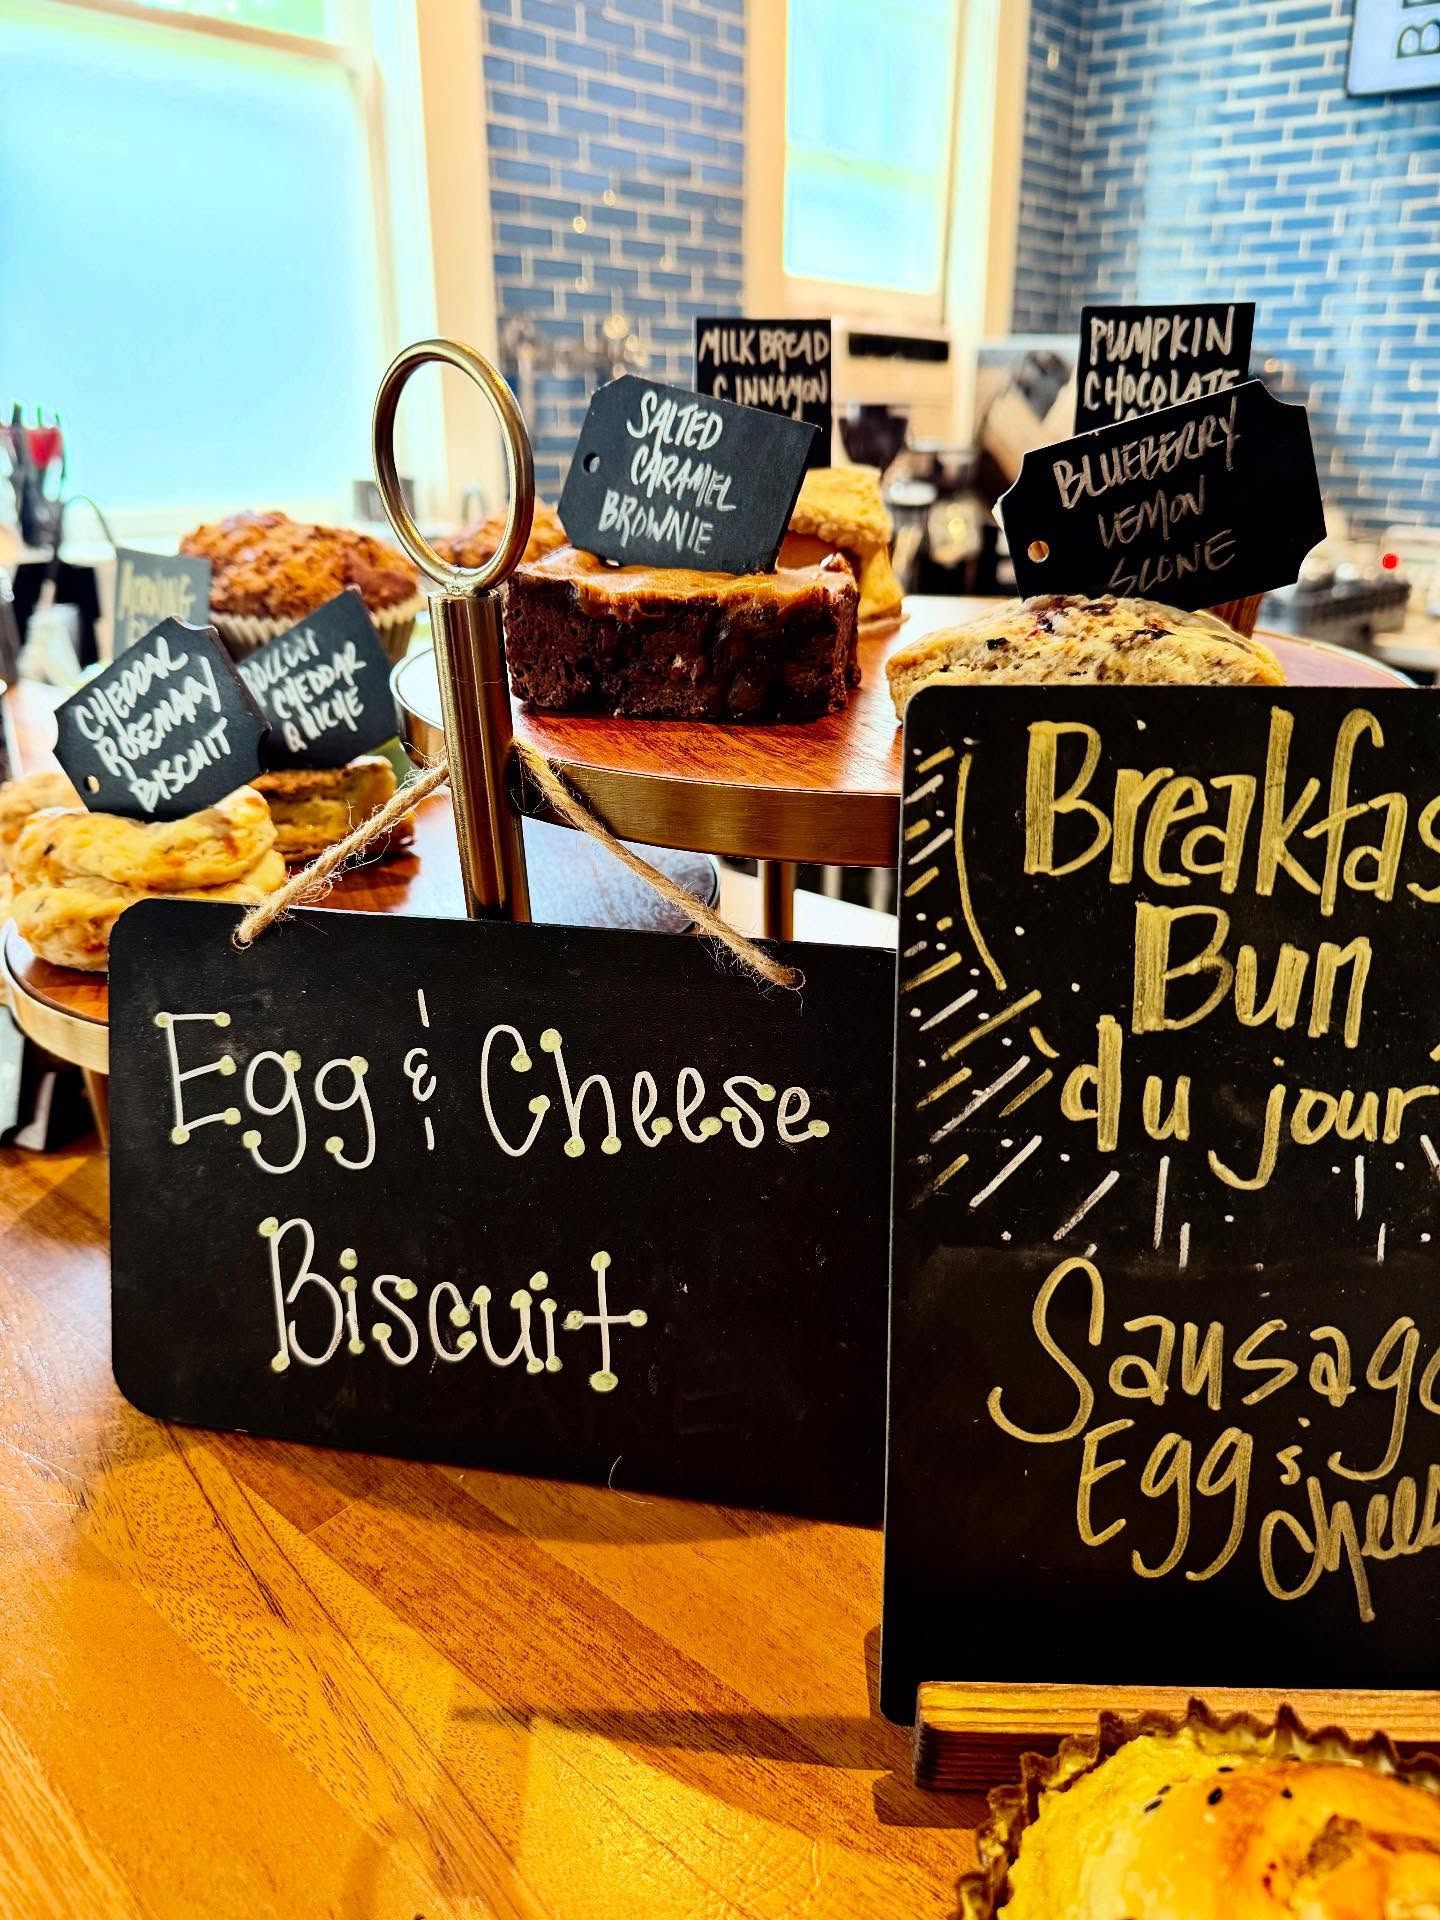 MILK BREAD
CINNAMON
PUMPKIN
CHOCOLATE
SALTED
CARAMEL
BROWNIE
BLUEBERRY
LEMON
SCONE
MORNING
CHEDDAR
ROSEMARY
BISCUIT
CHEDDAR
QUICHE
Egg & Cheese
Biscuit
Breakfas
Bun
du jour
Sausag
Egg &
chees